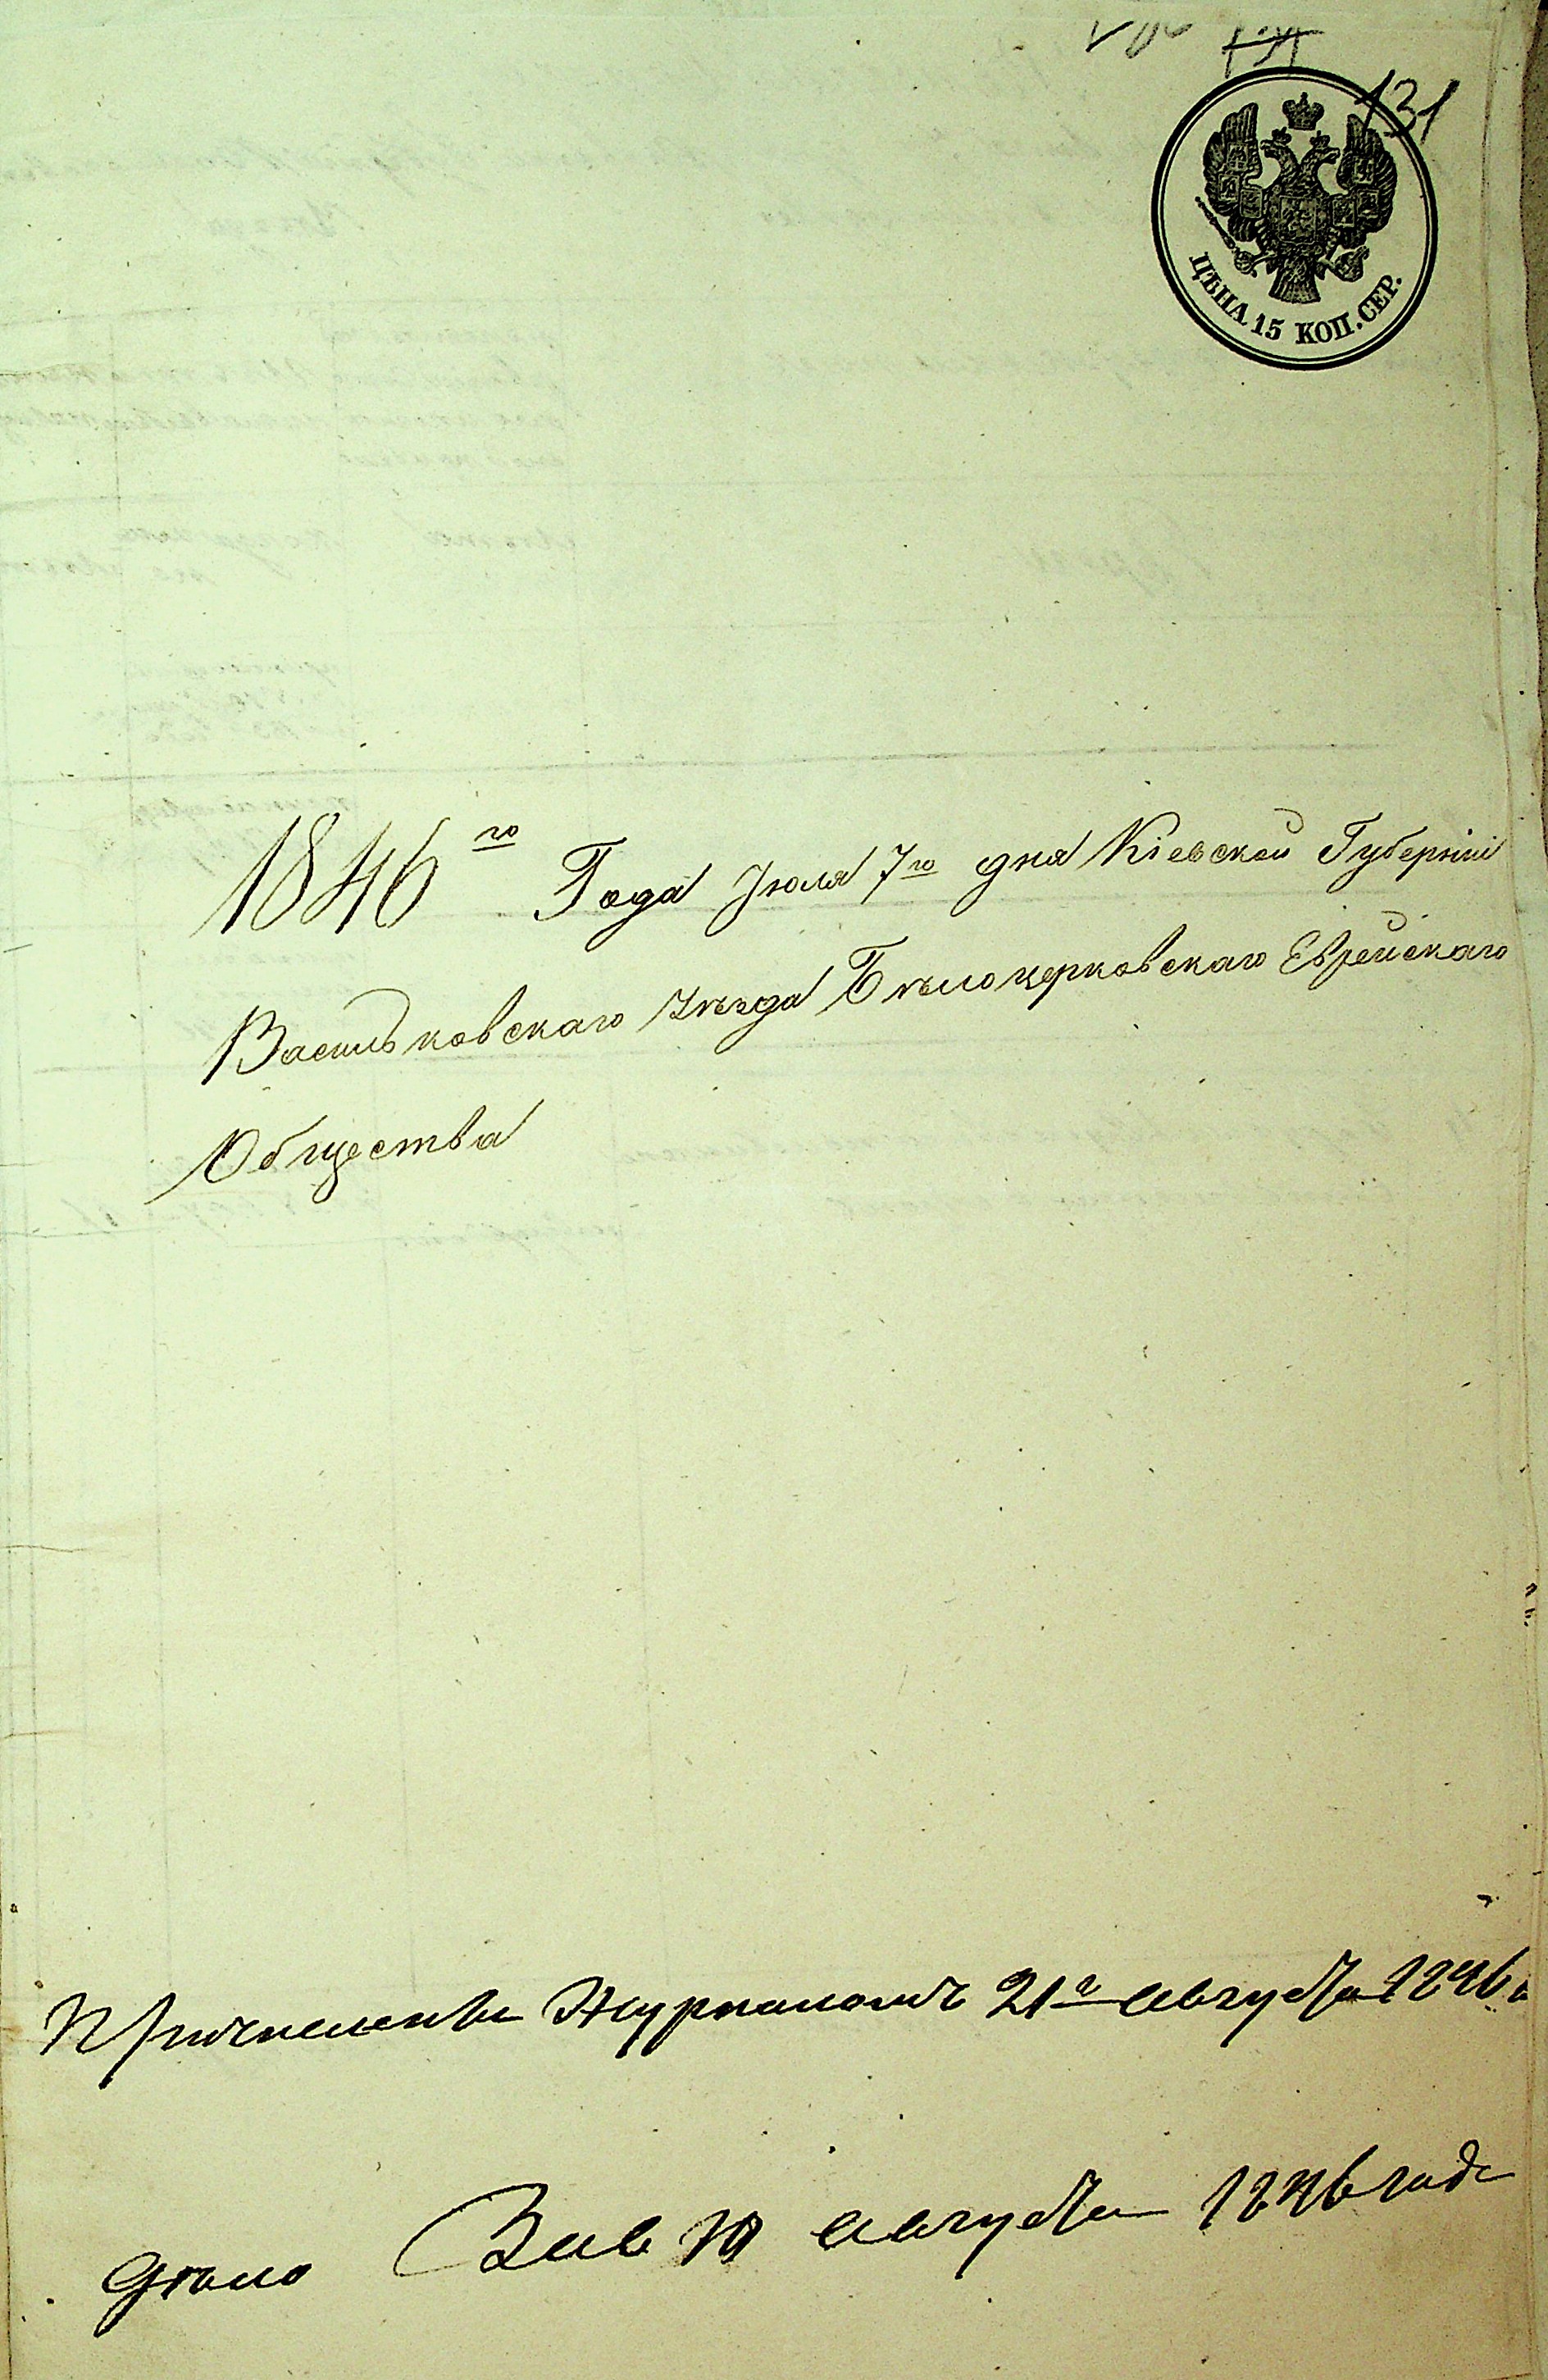 131
ЦѢНА 15 КОП. СЕР.
1846го Года Июля 7го дня Кіевской Губерніи
Васильковскаго уѣзда Бѣлоцерковскаго Еврейскаго
Общества
Причисленъ Журналомъ 21го Августа 1846
Дѣло августа 1846 года